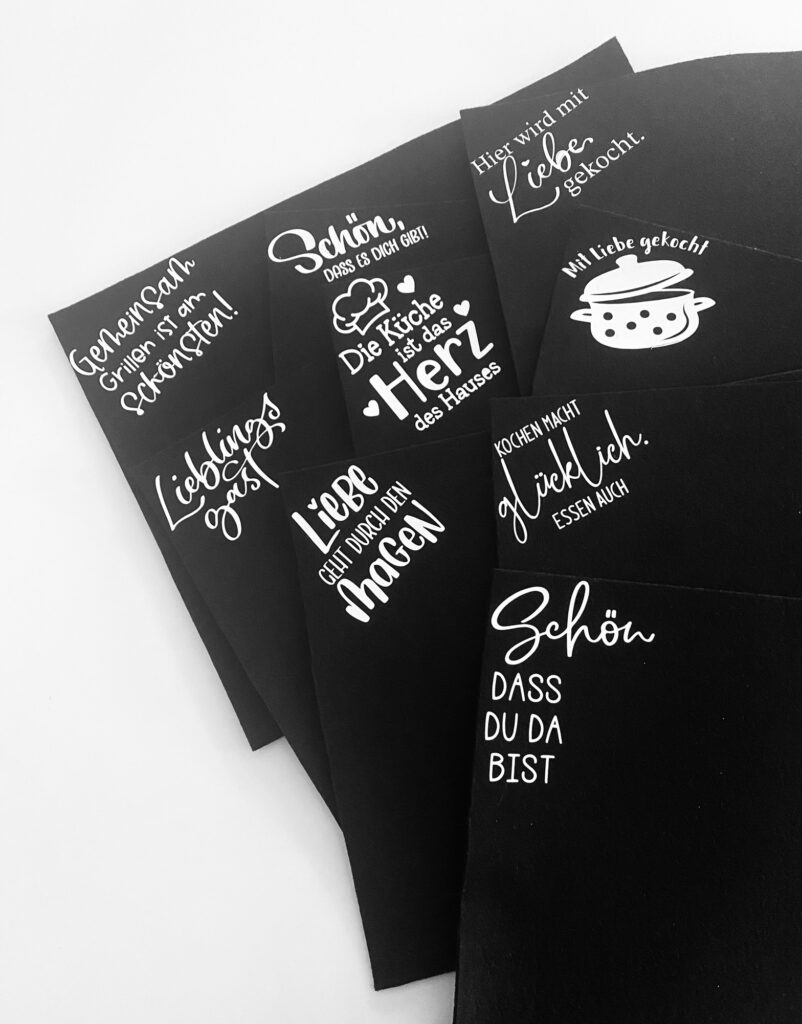 Hier wird mit
Liebe
gekocht.
Schön,
DASS ES DICH GIBT!
Mit Liebe gekocht
Gemeinsam
Grillen ist am
schönsten!
Die Küche
ist das
Herz
des Hauses
Lieblings
gast
KOCHEN MACHT
glücklich.
ESSEN AUCH
LIEBE
GEHT DURCH DEN
MAGEN
Schön
DASS
DU DA
BIST